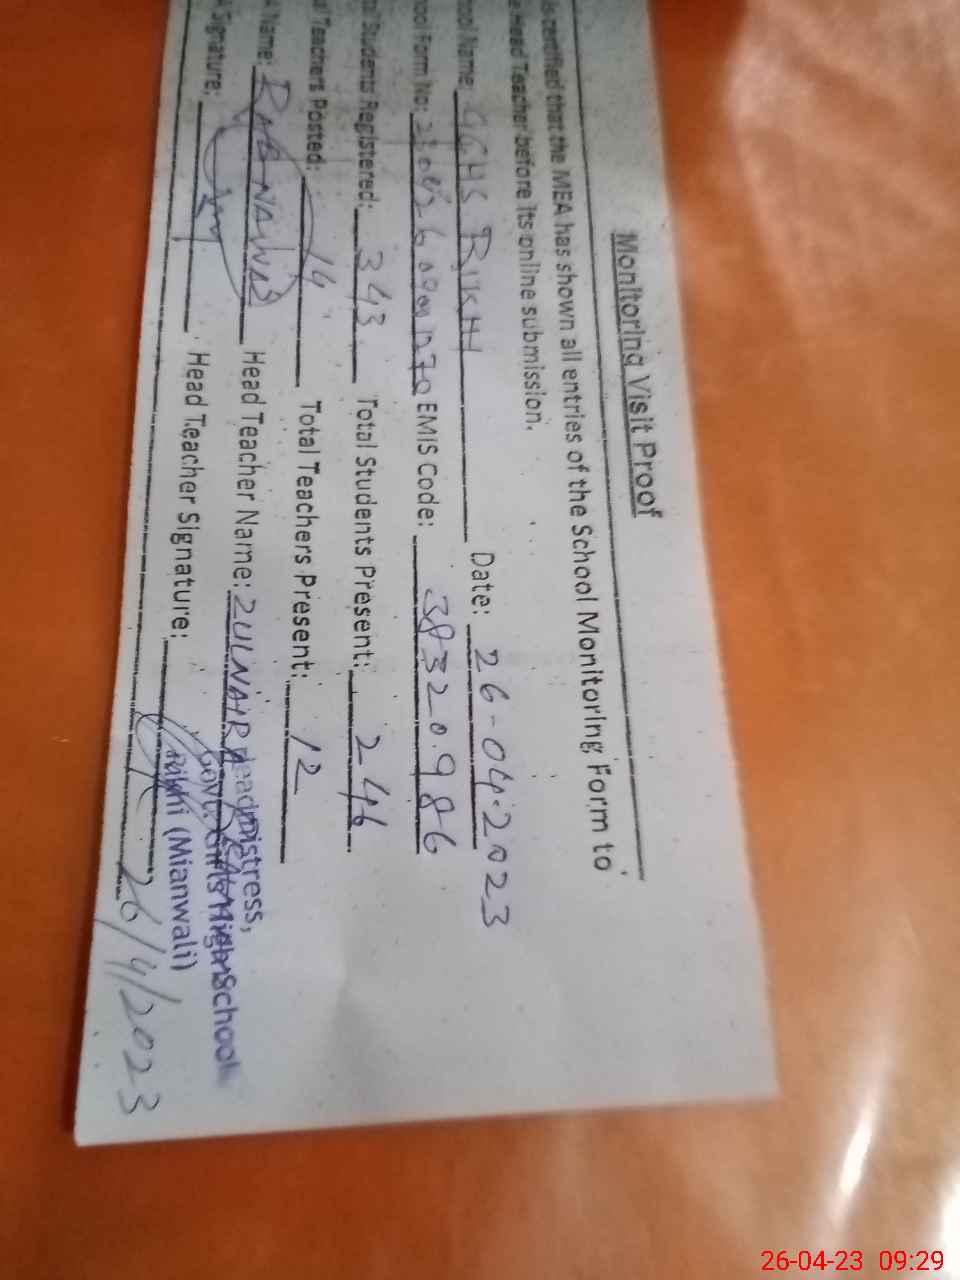 Monitoring Visit Proof
is certified that the MEA has shown all entries of the School Monitoring Form to
Head Teacher before its online submission.
ool Name: GGHS RIKHI Date: 26-04-2023
ool Form No: EMIS Code: 38320986
Students Registered: 343 Total Students Present: 246
Teachers Posted: 14 Total Teachers Present: 12
Name: RAB NAWAZ Head Teacher Name: ZULNAIRA
Signature: Head Teacher Signature:
Headmistress,
Govt. Girls High School
Rikhi (Mianwali)
26/4/2023
26-04-23 09:29